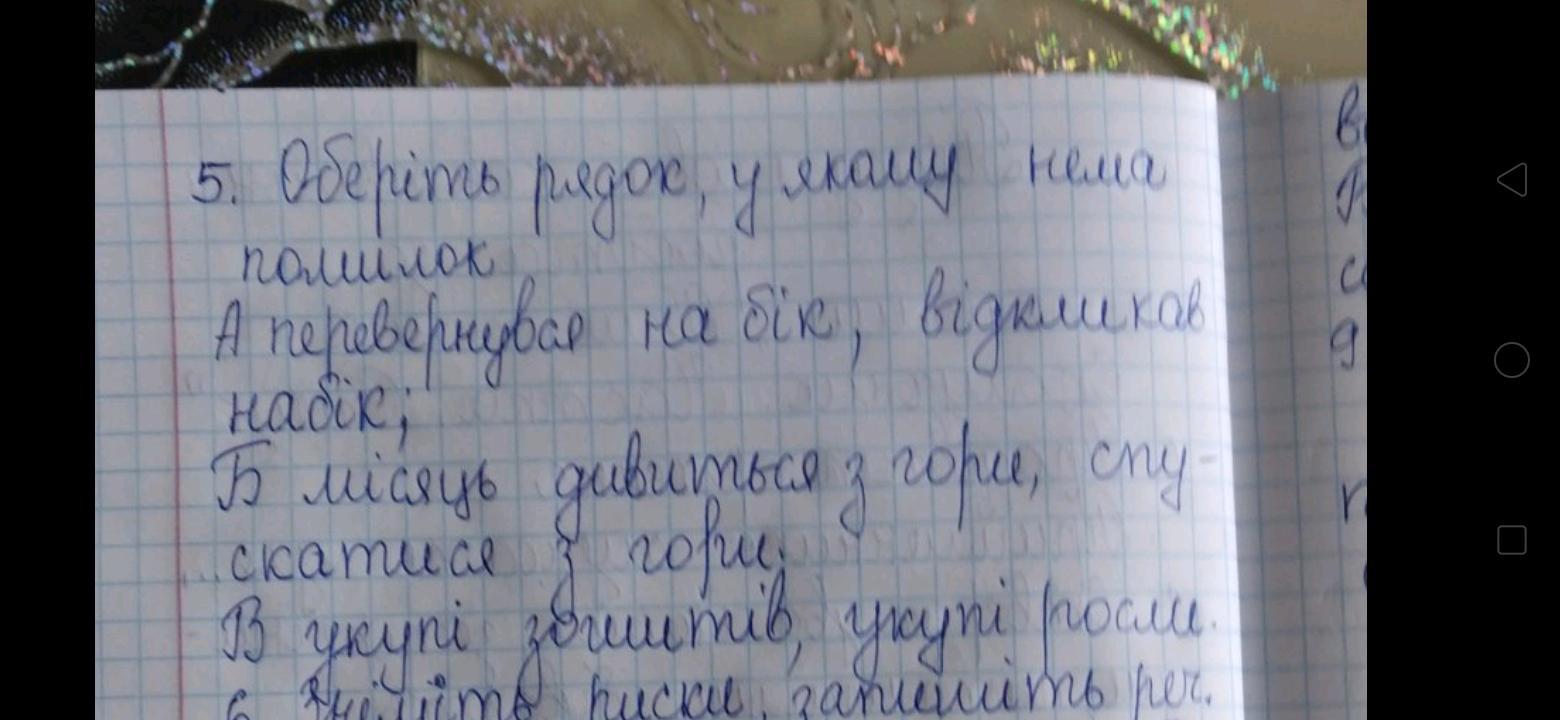 5. Оберіть рядок, у якому нема
помилок
А перевернувся на бік, відкликав
набік;
Б місяць дивиться з гори, спу-
скатися з гори;
В укупі зошитів, укупі росли.
6 Зніміть риски, запишіть реч.